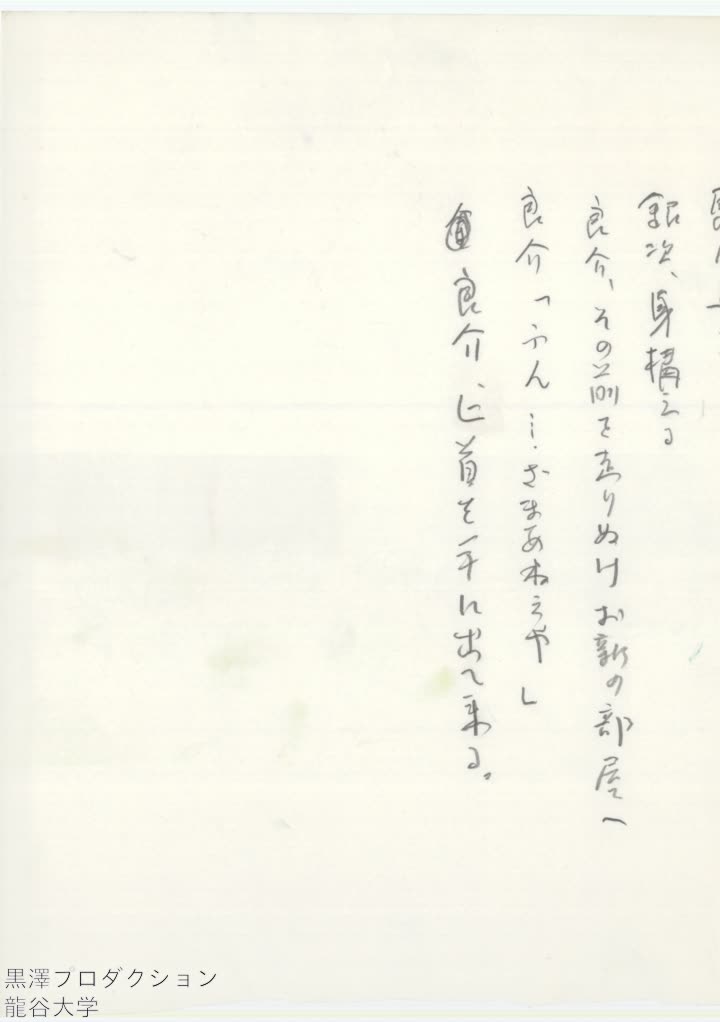 銀次、身構える
良介、その前を走りぬけお新の部屋へ
良介「ふん…ざまあねえや」
良介、匕首を手に出て来る。
黒澤プロダクション
龍谷大学